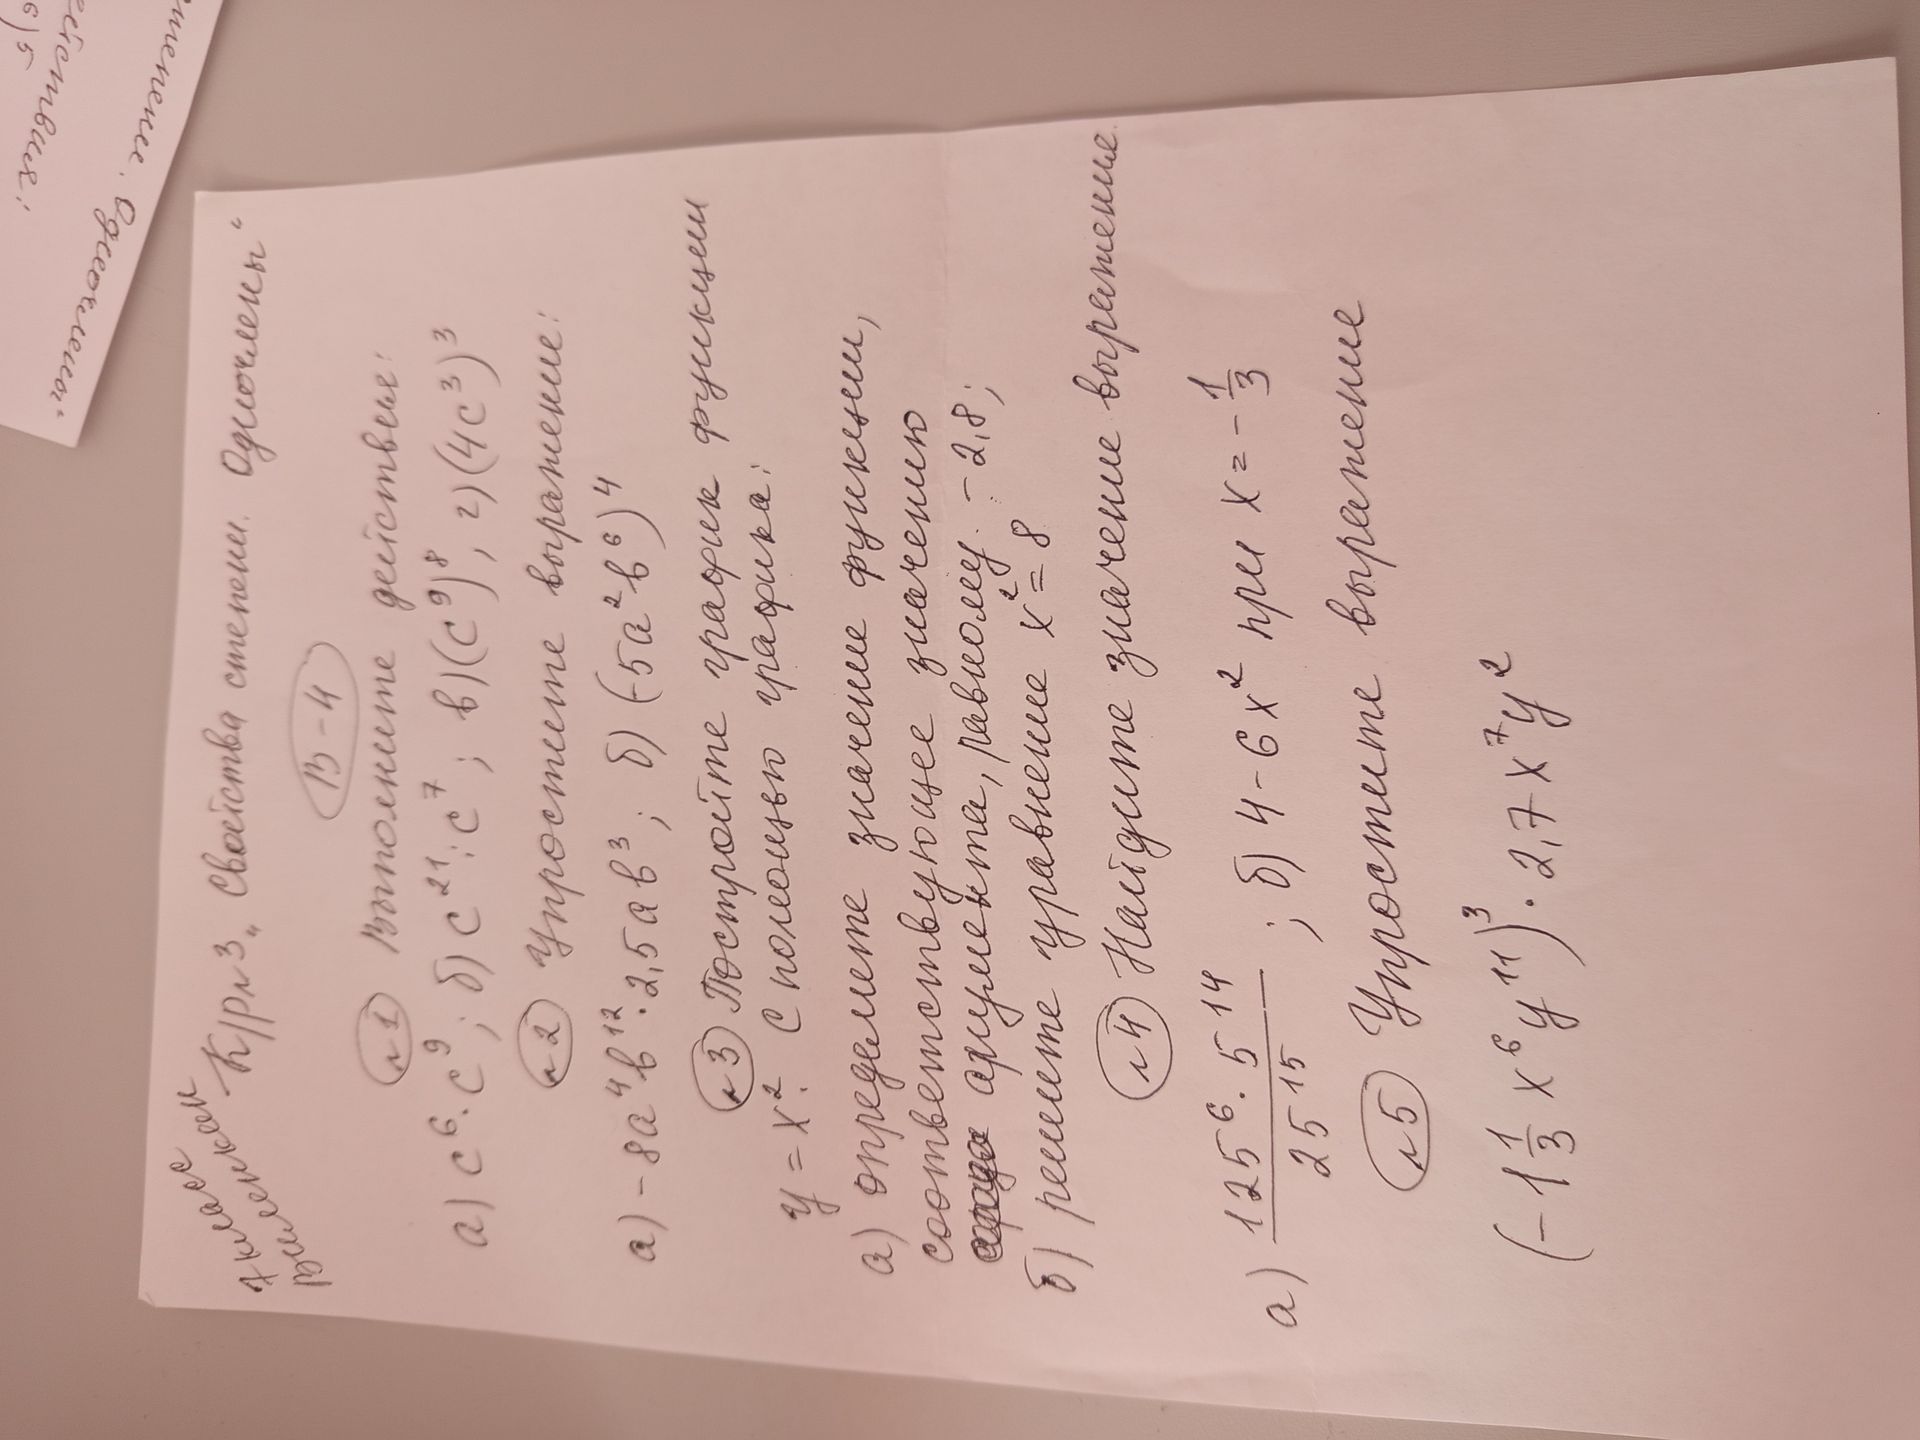 7 класс
Виленкин
К/р №3 „Свойства степени. Одночлены“
В-4
№1 Выполните действие:
а) c⁶·c⁹; б) c²¹:c⁷; в) (c⁹)⁸, г) (4c³)³
№2 Упростите выражение:
а) -8a⁴b¹²·2,5ab³; б) (-5a²b⁶)⁴
№3 Постройте график функции
y = x². С помощью графика:
а) определите значение функции,
соответствующее значению
аргумента, равному -2,8;
б) решите уравнение x² = 8
№4 Найдите значение выражение.
а) \frac{125⁶·5¹⁴}{25¹⁵}; б) 4-6x² при x = -\frac{1}{3}
№5 Упростите выражение
(-1\frac{1}{3}x⁶y¹¹)³·2,7x⁷y²
шение. Одночлены“
ействия:
6)5